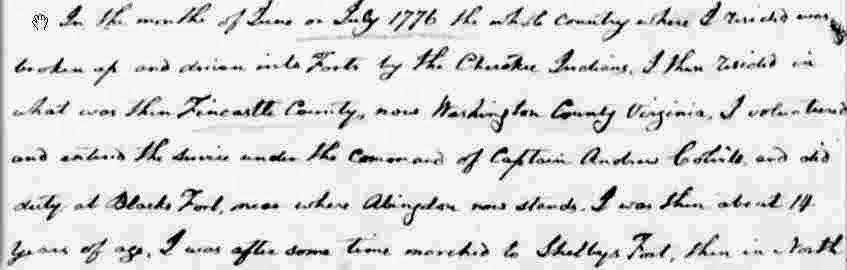 In the months of June or July 1776 the whole country where I resided was
broken up and driven into Forts by the Cherokee Indians. I then resided in
what was then Fincastle County, now Washington County Virginia. I volunteered
and entered the service under the command of Captain Andrew Colvile, and did
duty at Blacks Fort, near where Abingdon now stands. I was then about 14
years of age. I was after some time marched to Shelbys Fort, then in North